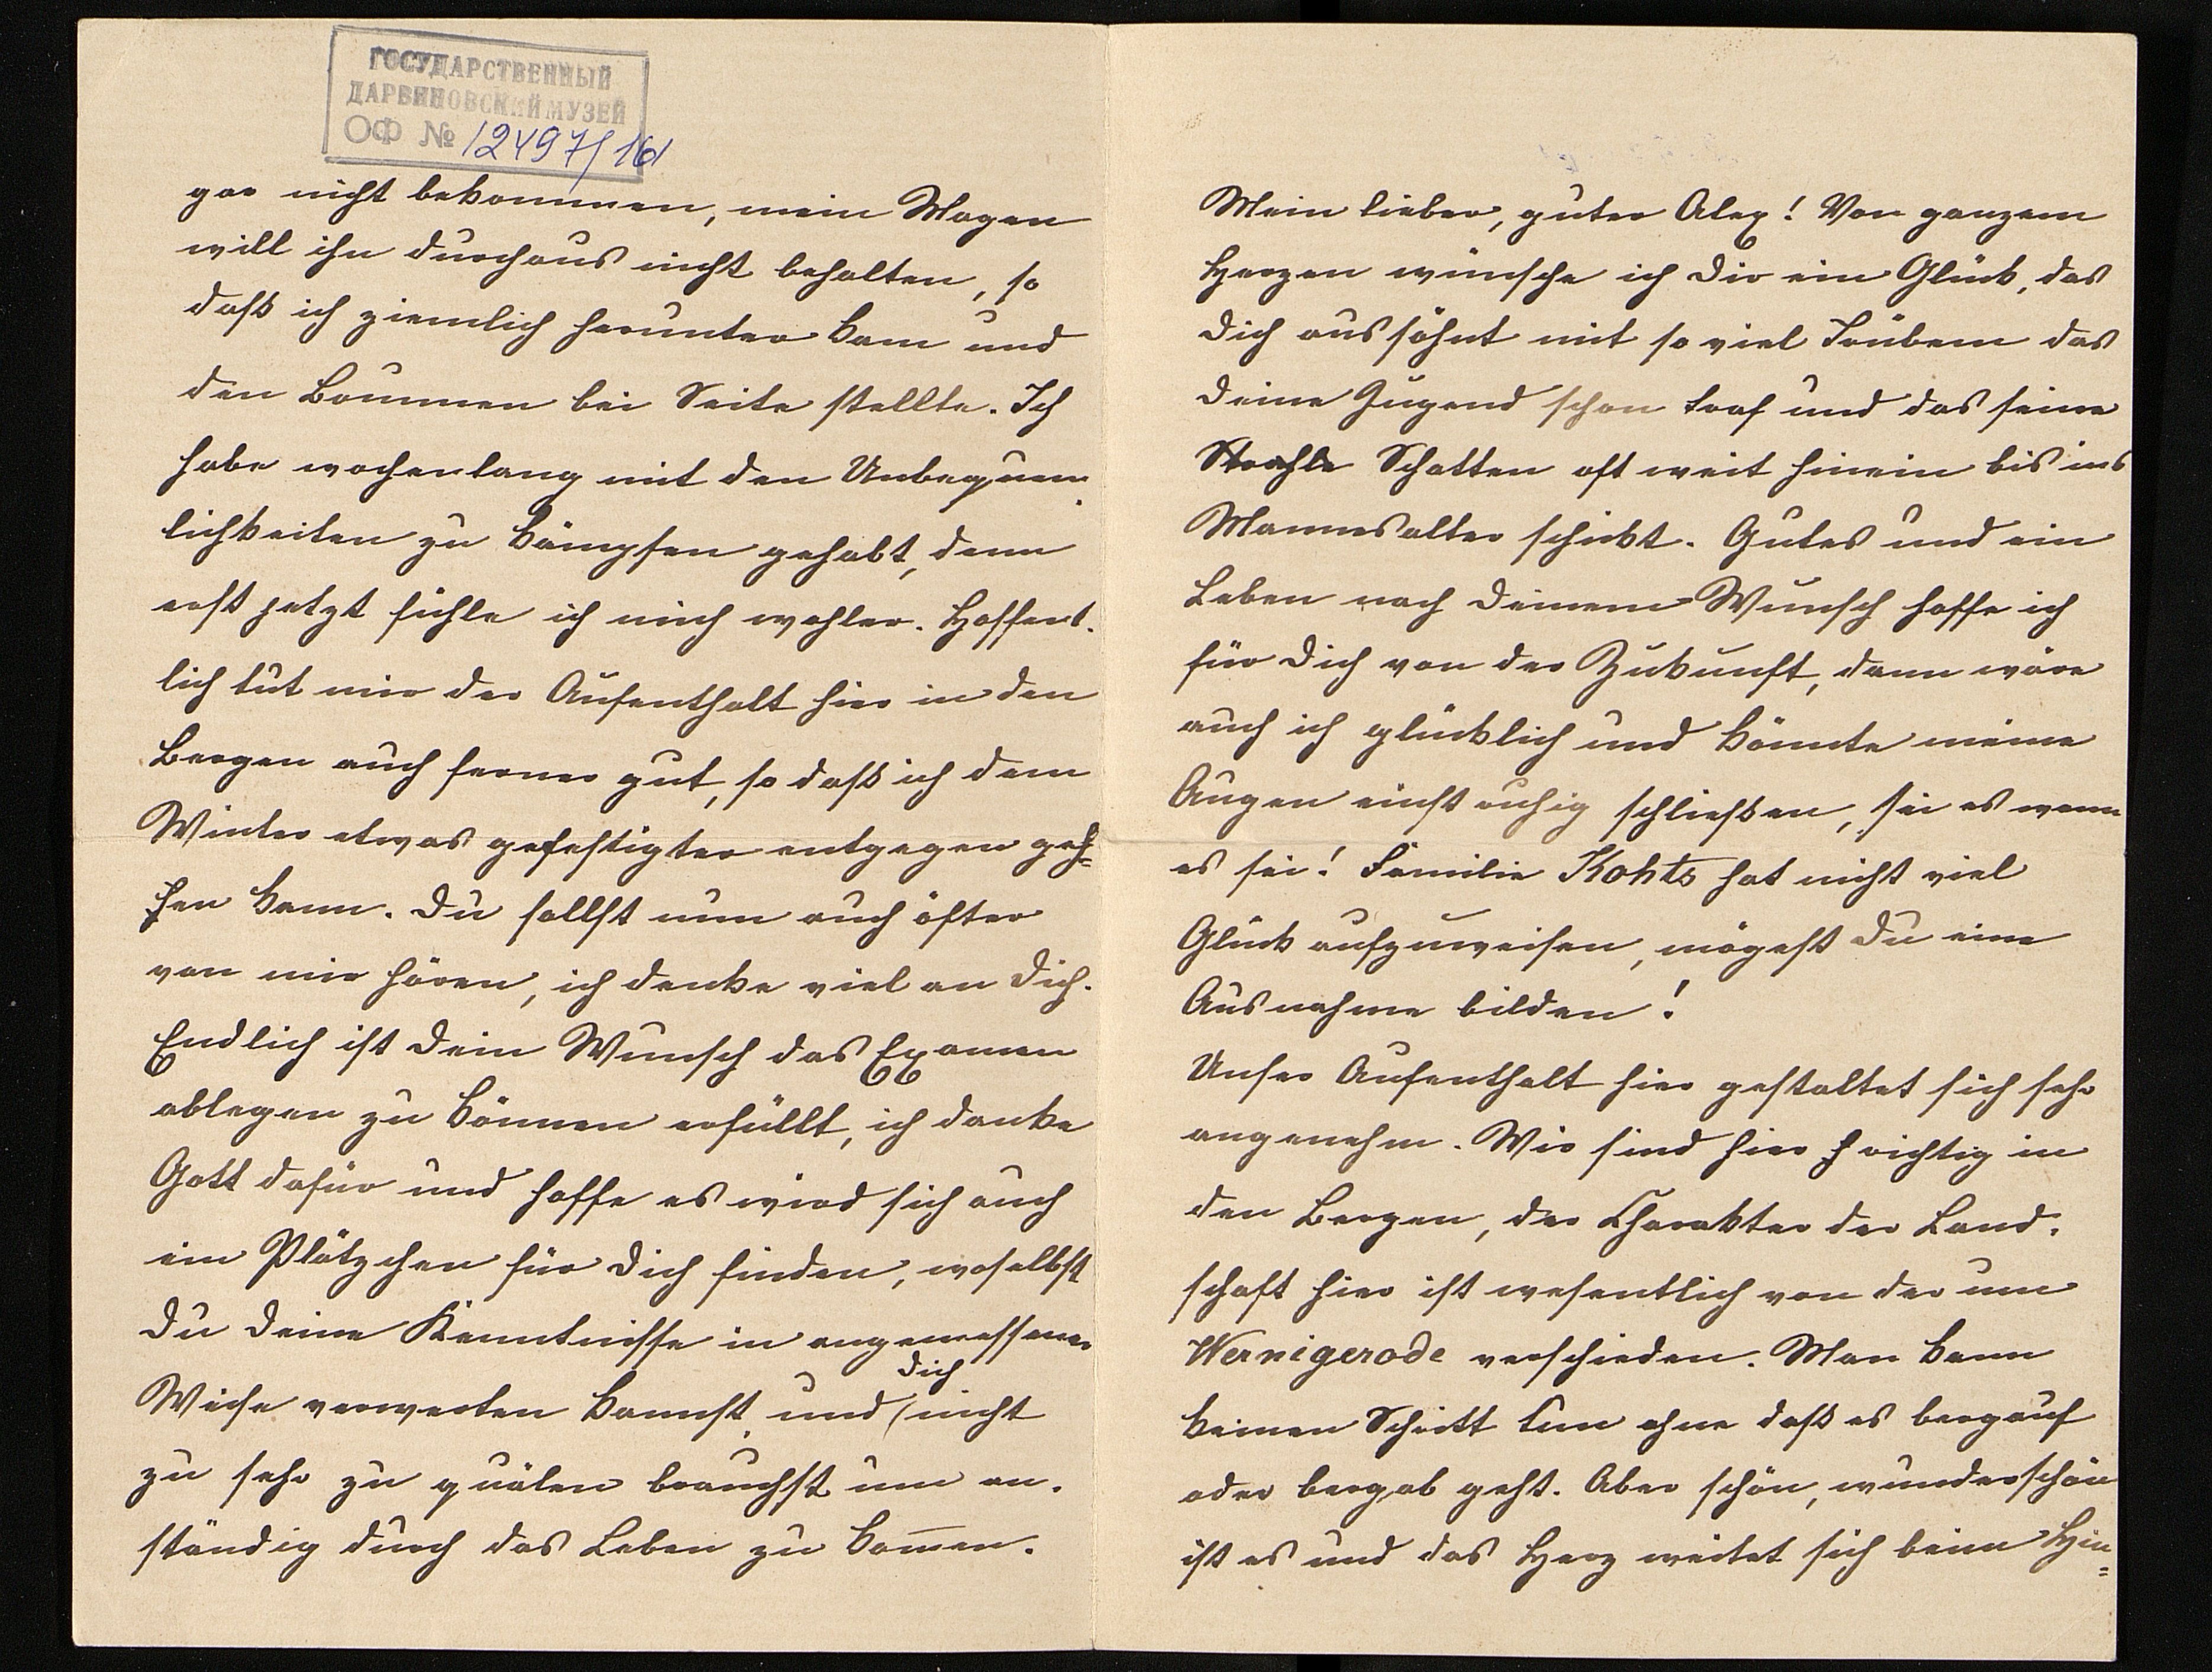 ГОСУДАРСТВЕННЫЙ
ДАРВИНОВСКИЙ МУЗЕЙ
ОФ № 12497/161
gar nicht bekommen, mein Magen
will ihn durchaus nicht behalten, so
daß ich ziemlich herunter kam und
den Brunnen bei Seite stellte. Ich
habe wochenlang mit den Unbequem-
lichkeiten zu kämpfen gehabt, denn
erst jetzt fühle ich mich wohler. Hoffent-
lich tut mir der Aufenthalt hier in den
Bergen auch ferner gut, so daß ich dem
Winter etwas gefestigter entgegen geh=
hen kann. Du sollst nun auch öfter
von mir hören, ich denke viel an Dich.
Endlich ist Dein Wunsch das Examen
ablegen zu können erfüllt, ich danke
Gott dafür und hoffe es wird sich auch
ein Plätzchen für Dich finden, woselbst
Du Deine Kenntnisse in angemessener
Weise verwerten kannst, und Dich nicht
zu sehr zu quälen brauchst um an-
ständig durch das Leben zu kommen.
Mein lieber, guter Alex! Von ganzem
Herzen wünsche ich Dir ein Glück, das
Dich aussöhnt mit so viel Trübem das
Deine Jugend schon traf und das seine
Strahle Schatten oft weit hinein bis ins
Mannesalter schickt. Gutes und ein
Leben nach Deinem Wunsch hoffe ich
für Dich von der Zukunft, dann wäre
auch ich glücklich und könnte meine
Augen einst ruhig schließen, sei es wann
es sei! Familie Kohts hat nicht viel
Glück aufzuweisen, mögest Du eine
Ausnahme bilden!
Unser Aufenthalt hier gestaltet sich sehr
angenehm. Wir sind hier richtig in
den Bergen, der Charakter der Land-
schaft hier ist wesentlich von der um
Wernigerode verschieden. Man kann
keinen Schritt tun ohne daß es bergauf
oder bergab geht. Aber schön, wunderschön
ist es und das Herz weitet sich beim Hin=